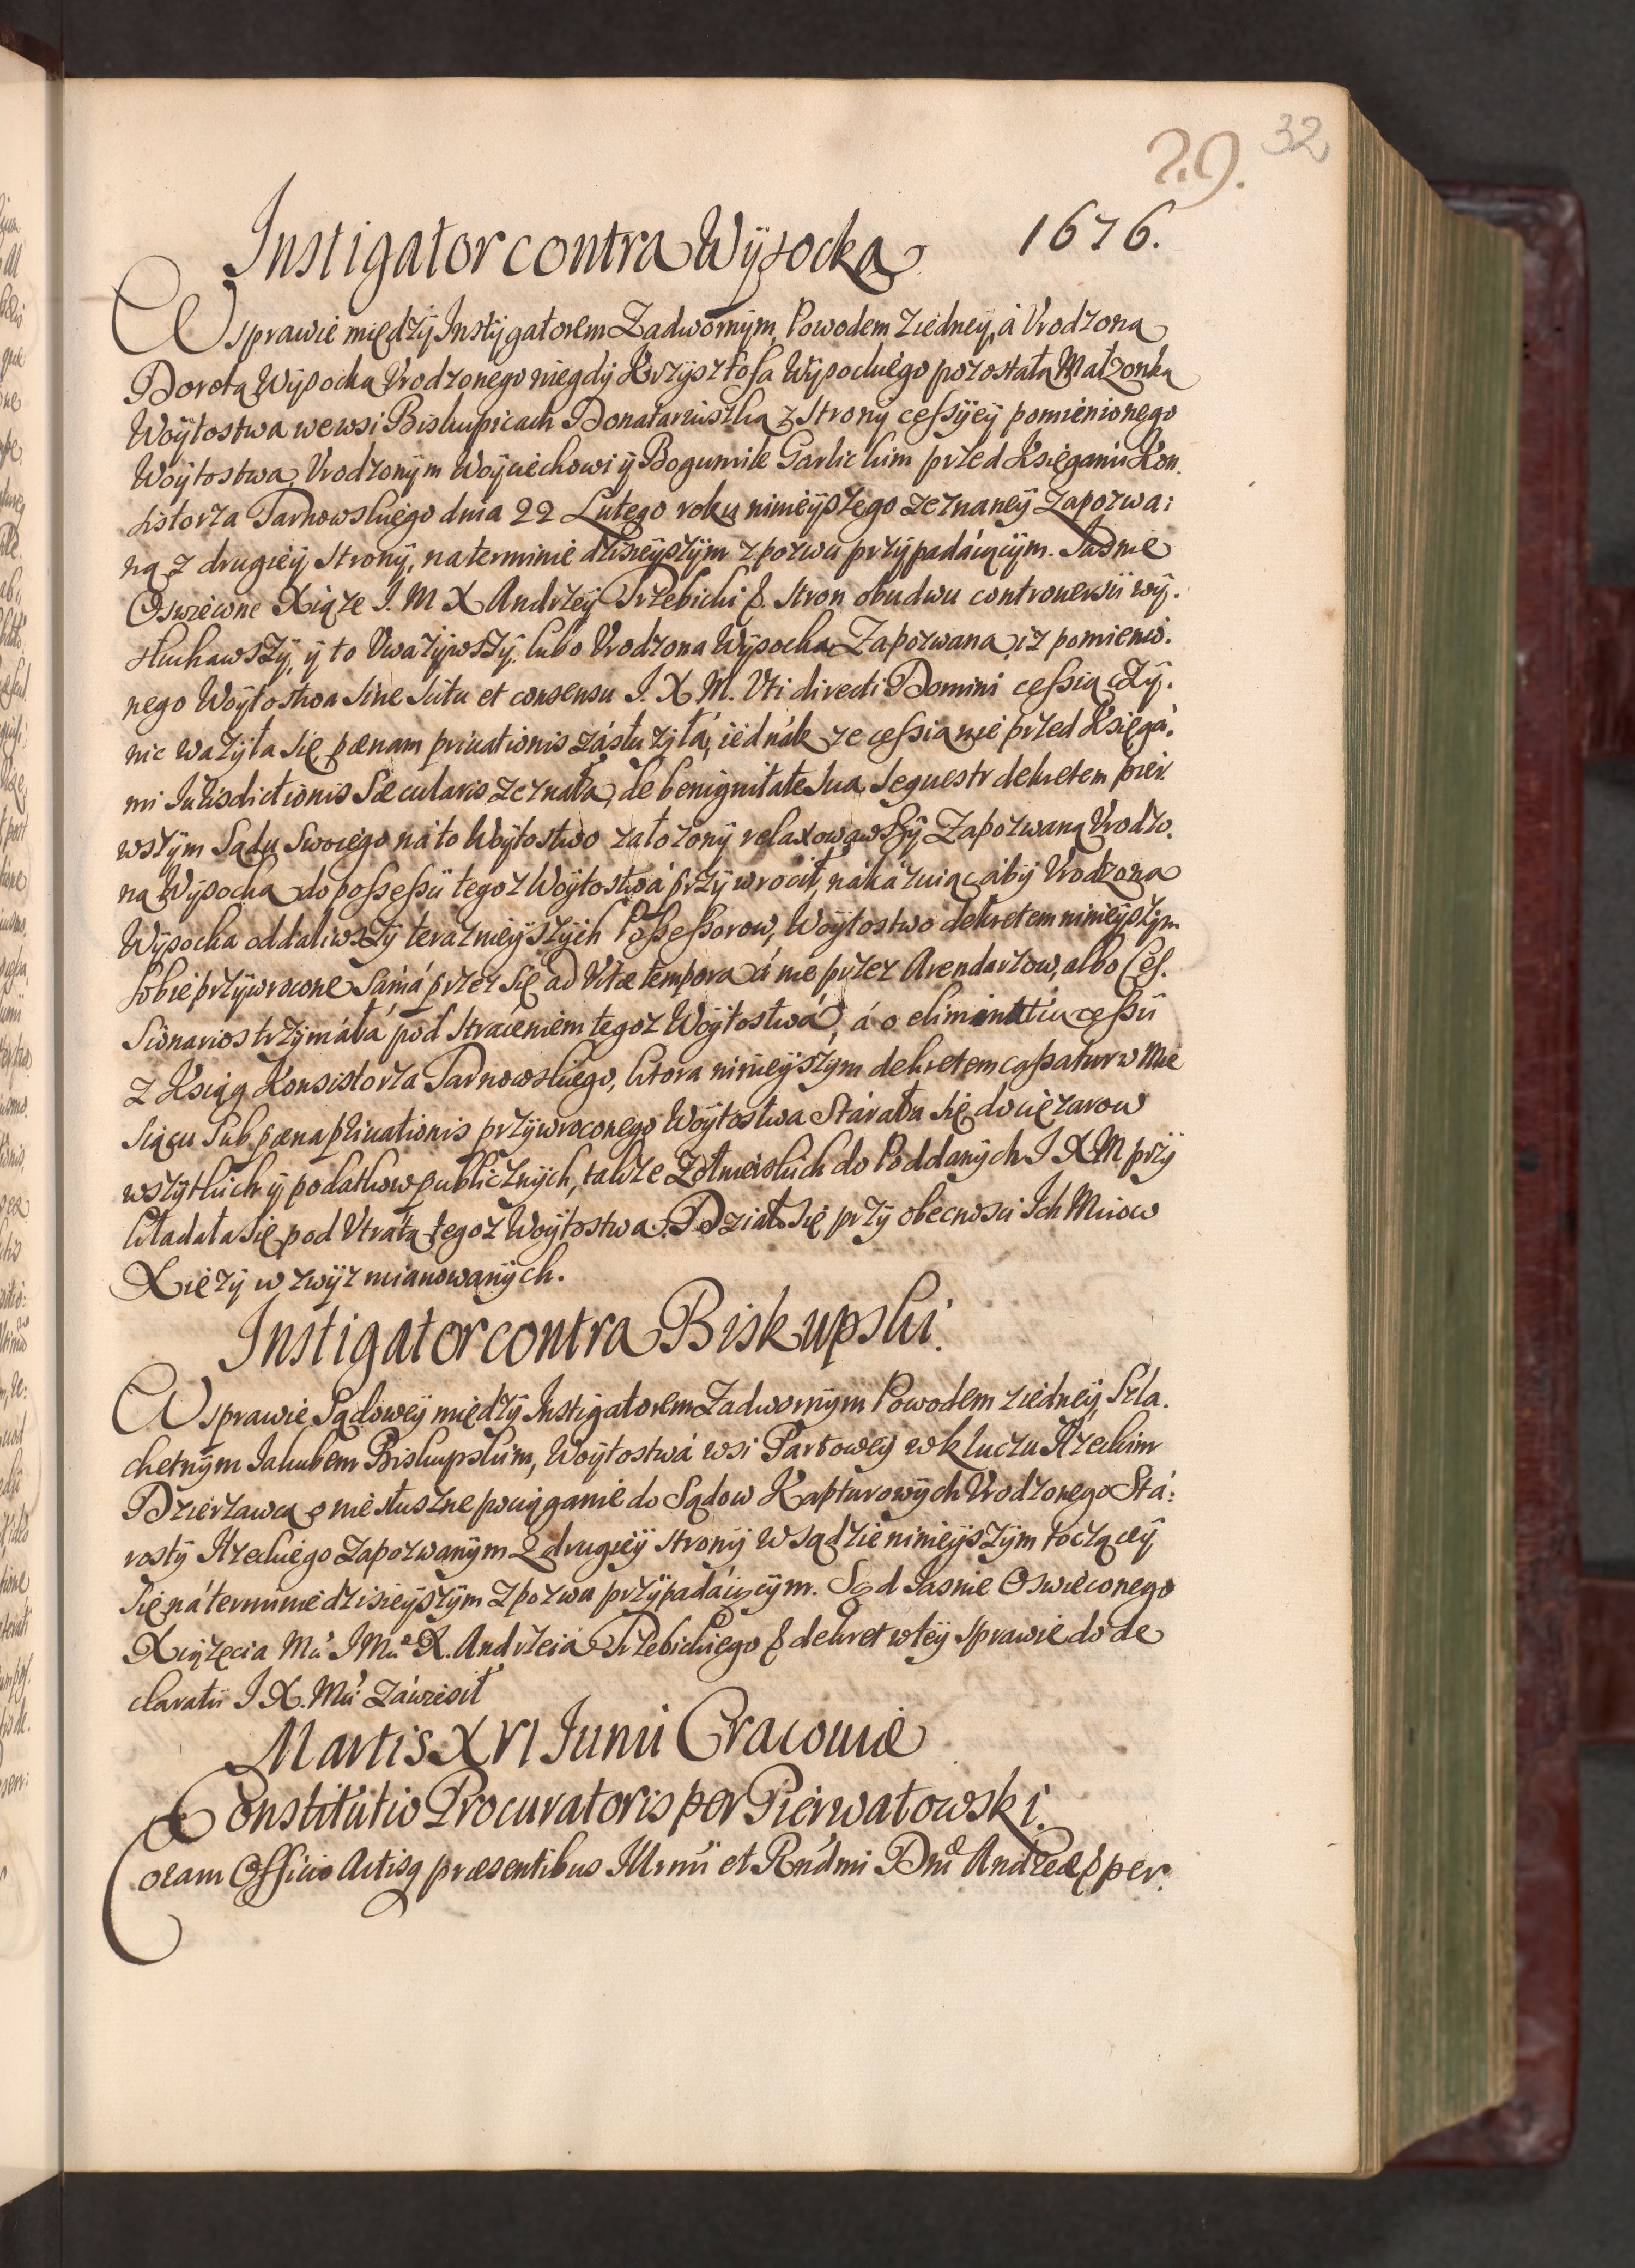 32
29.
1676.
Instigator contra Wÿsocka
W sprawie międzÿ Instÿgatorem Zadwornÿm, Powodem z iedneÿ, á Vrodzoną
Dorotą Wÿsocką Vrodzonego niegdÿ Krzÿsztofa Wÿsockiego pozostałą Małzonką
Woÿtostwa we wsi Biskupicach Donatariuszką z Stronÿ cessÿeÿ pomienionego
Woÿtostwa Vrodzonÿm Woÿciechowi ÿ Bogumile Garlickim przed Księgami Kon
sistorza Tarnowskiego dnia 22 Lutego roku ninieÿszego zeznaneÿ Zapozwa:
ną z drugieÿ Stronÿ, na terminie dzisieÿszÿm z pozwu przÿpadáiącÿm. Jasnie
Oswiecone Xiąze J. M X Andrzeÿ Trzebicki &. Stron obudwu controuersii wÿ.
słuchawszÿ, ÿ to Vwazÿwszÿ, lubo Vrodzona Wÿsocka Zapozwana iz pomienio.
nego Woÿtostwa Sine Scitu et consensu J. X M. Vti directi Domini cessią czÿ.
nic wazÿła Się, pœnam priuationis zásłuzÿłá, iednák ze cessia nie przed Księgá.
mi Iurisdictionis Sæcularis zeznała, de benignitate Sua Sequestr dekretem pier
wszÿm Sądu Swoiego ná to Woÿtostwo załozonÿ relaxowawszÿ Zapozwaną Vrodzo.
ną Wÿsocką do possessii tegoz Woÿtostwá przÿwrocił, nákázuiąc ábÿ Vrodzona
Wÿsocka oddaliwszÿ teraznieÿszÿch Possessorow, Woÿtostwo dekretem ninieÿszÿm
sobie przÿwrocone Sámá przez Się ad Vitæ tempora á nie przez Arendarzow, albo Ces.
sionarios trzÿmáłá pod Straceniem tegoz Woÿtostwá, á o eliminatią cessii
z Ksiąg Konsistorza Tarnowskiego, ktora ninieÿszÿm dekretem cassatur w Mie
siącu Sub pœna priuationis przÿwroconego Woÿtostwa Stárała Się, do cięzarow
wszÿtkich ÿ podatkow publicznÿch, także Zołnierskich do Poddanÿch J X M przÿ
kładała Się pod Vtratą tegoz Woÿtostwa. Dziáło Się przÿ obecnosci Ich Mciow
Xięzÿ w zwÿz mianowanÿch.
Instigator contra Biskupski.
W sprawie Sądoweÿ międzÿ Instigatorem Zadwornÿm Powodem z iedneÿ, Szla.
chetnÿm Jakubem Biskupskim, Woÿtostwá wsi Tarkoweÿ w kluczu Iłzeckim
Dzierzawcą o niesłuszne pociąganie do Sądow Kapturowÿch Vrodzonego Stá:
rostÿ Iłzeckiego Zapozwanÿm z drugieÿ stronÿ w Sądzie ninieÿszÿm toczącej
Się ná terminie dzisieÿszÿm z pozwu przÿpadáiącÿm. Sąd Jasnie Oswieconego
Xiązęcia Mci J Mci X. Andrzeiá Trzebickiego & dekret w teÿ sprawie do de
claratii J X. Mci záwiesił
Martis XVI Iunii Cracouiæ
Constitutio Procuratoris per Pierwatowski.
Coram Officio Actisq præsentibus Illrmi et Rndmi Dni Andreæ & per.